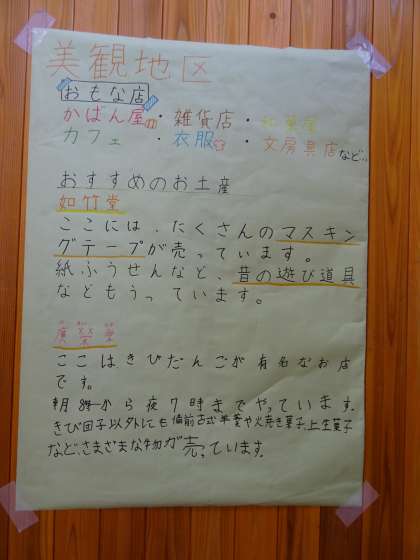 美観地区
おもな店
かばん屋・雑貨店・和菓屋
カフェ・衣服・文房具店など…
おすすめのお土産
如竹堂
ここには、たくさんのマスキン
グテープが売っています。
紙ふうせんなど、昔の遊び道具
などもうっています。
廣榮堂
ここはきびだんごが有名なお店
です。
朝8時から夜7時までやっています。
きび団子以外にも備前古式羊羹や火焼き菓子、上生菓子
など、さまざまな物が売っています。